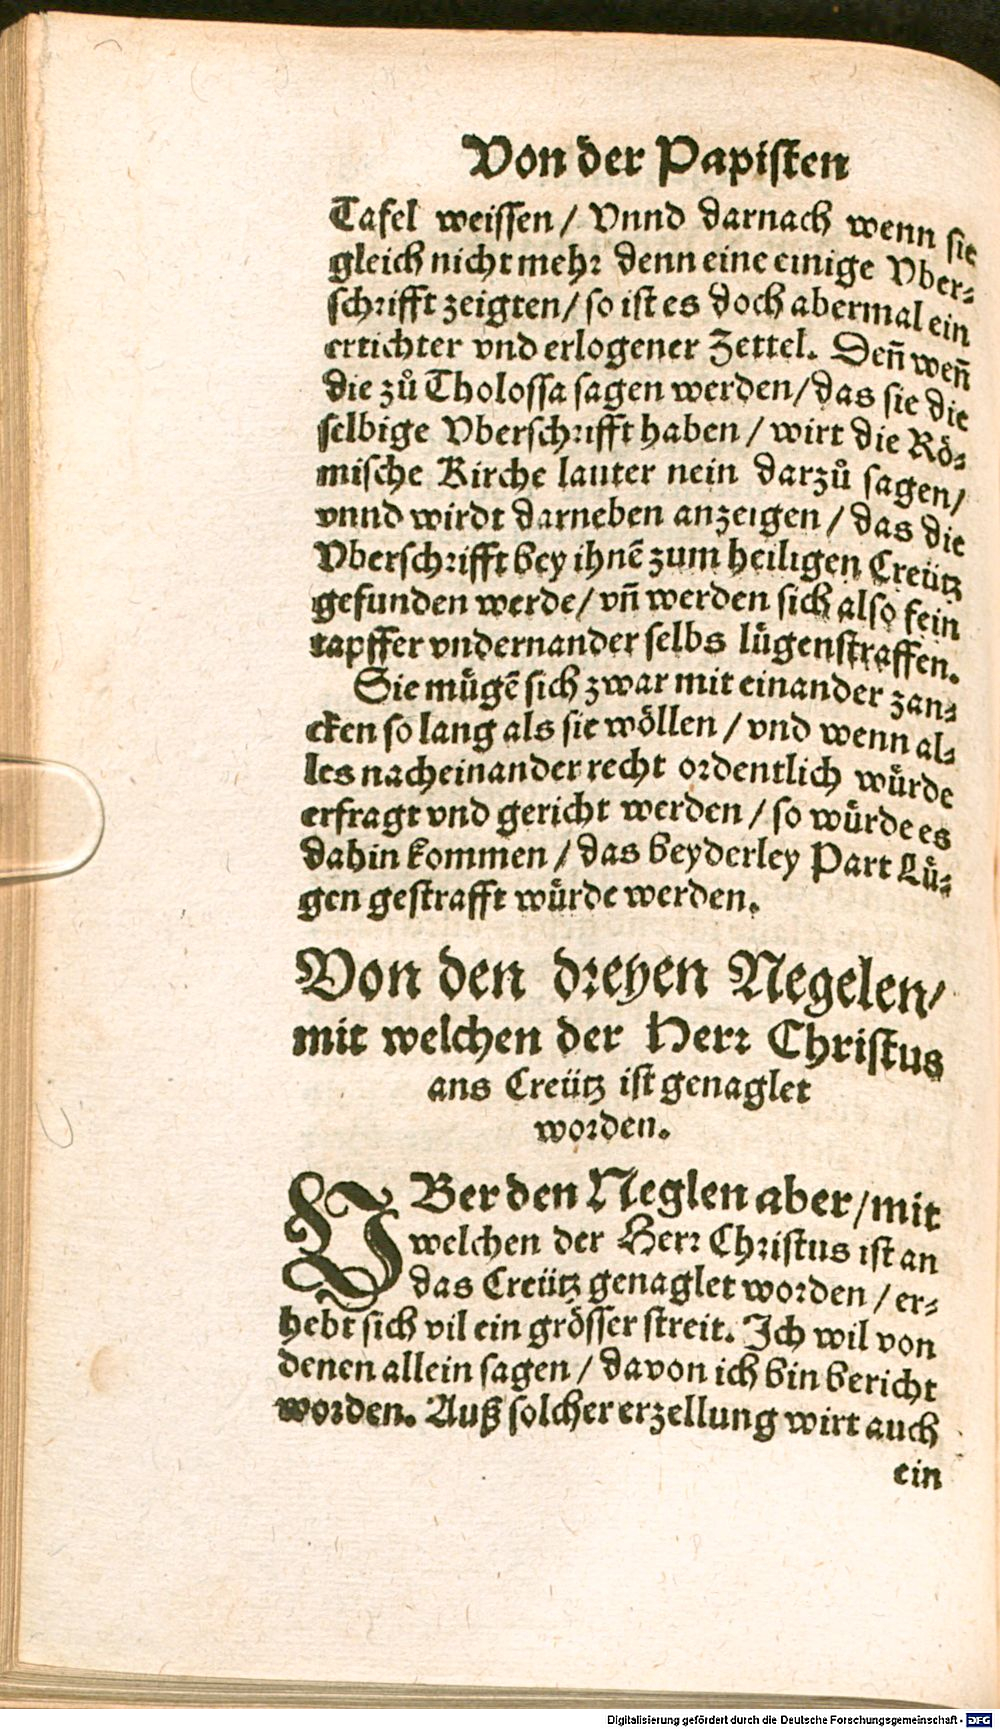 Von der Papisten
Tafel weissen / Vnnd darnach wenn sie
gleich nicht mehr denn eine einige Vber⸗
schrifft zeigten / so ist es doch abermal ein
ertichter vnd erlogener Zettel. Den̄ wen̄
die zů Tholossa sagen werden / das sie die
selbige Vberschrifft haben / wirt die Rö⸗
mische Kirche lauter nein darzů sagen /
vnnd wirdt darneben anzeigen / das die
Vberschrifft bey ihnē zum heiligen Creütz
gefunden werde / vn̄ werden sich also fein
tapffer vndernander selbs lügenstraffen.
Sie mügē sich zwar mit einander zan⸗
cken so lang als sie wöllen / vnd wenn al⸗
les nacheinander recht ordentlich würde
erfragt vnd gericht werden / so würde es
dahin kommen / das beyderley Part Lü⸗
gen gestrafft würde werden.
Von den dreyen Negelen /
mit welchen der Herr Christus
ans Creütz ist genaglet
worden.
VBer den Neglen aber / mit
welchen der Herr Christus ist an
das Creütz genaglet worden / er⸗
hebt sich vil ein grösser streit. Ich wil von
denen allein sagen / davon ich bin bericht
worden. Auß solcher erzellung wirt auch
ein
Digitalisierung gefördert durch die Deutsche Forschungsgemeinschaft - DFG